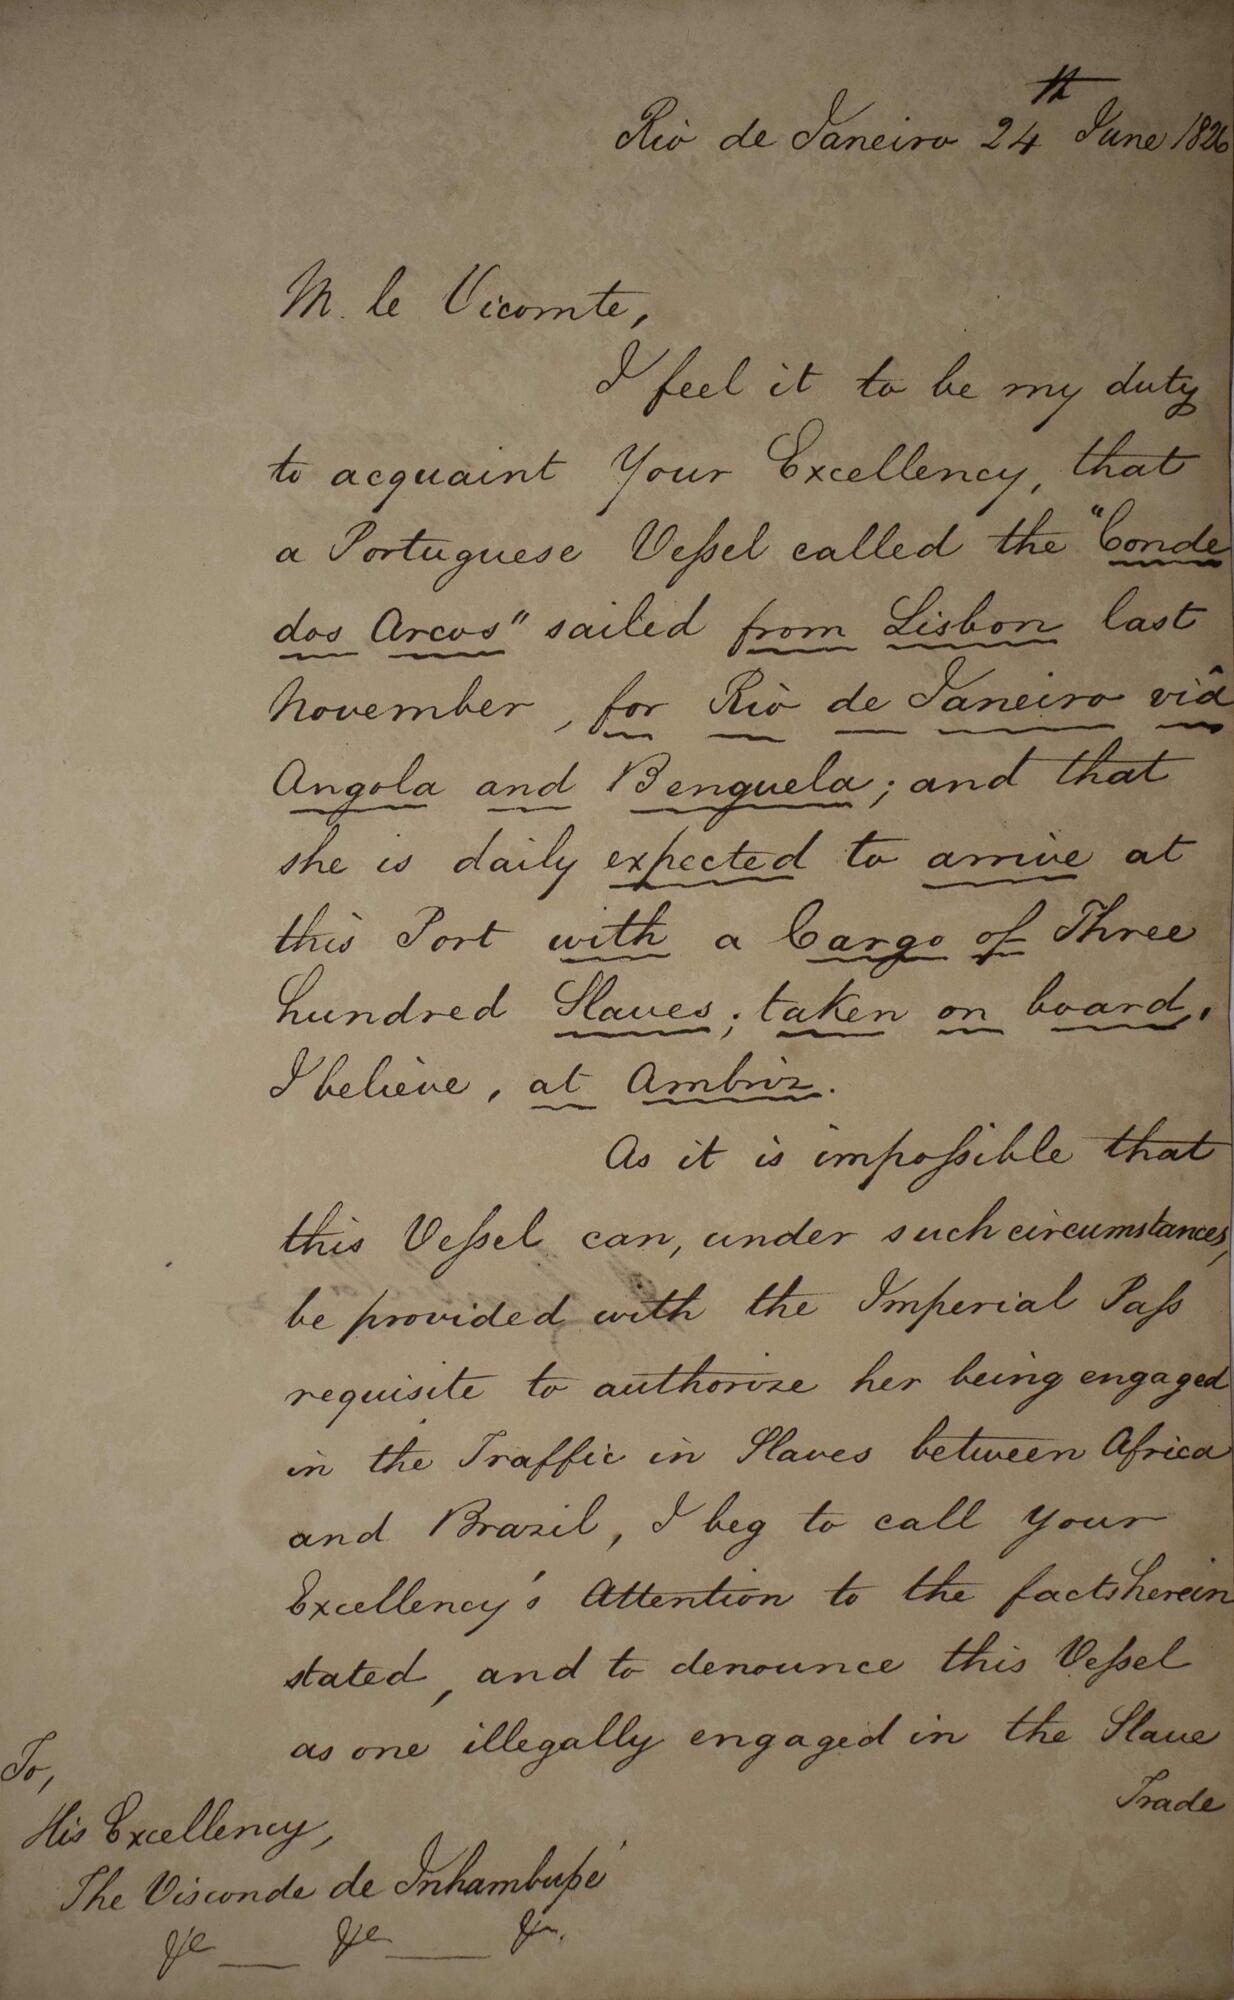 Rio de Janeiro 24th June 1826
M. le Vicomte,
I feel it to be my duty
to acquaint Your Excellency, that
a Portuguese Veſsel called the "Conde
dos Arcos" sailed from Lisbon last
November, for Rio de Janeiro viâ
Angola and Benguela; and that
she is daily expected to arrive at
this Port with a Cargo of Three
hundred Slaves; taken on board,
I believe, at Ambriz.
As it is impoſsible that
this Veſsel can, under such circumstances,
be provided with the Imperial Paſs
requisite to authorize her being engaged
in the Traffic in Slaves between Africa
and Brazil, I beg to call Your
Excellency's Attention to the facts herein
stated, and to denounce this Veſsel
as one illegally engaged in the Slave
Trade
To,
His Excellency,
The Visconde de Inhambupé
&c &c &c.